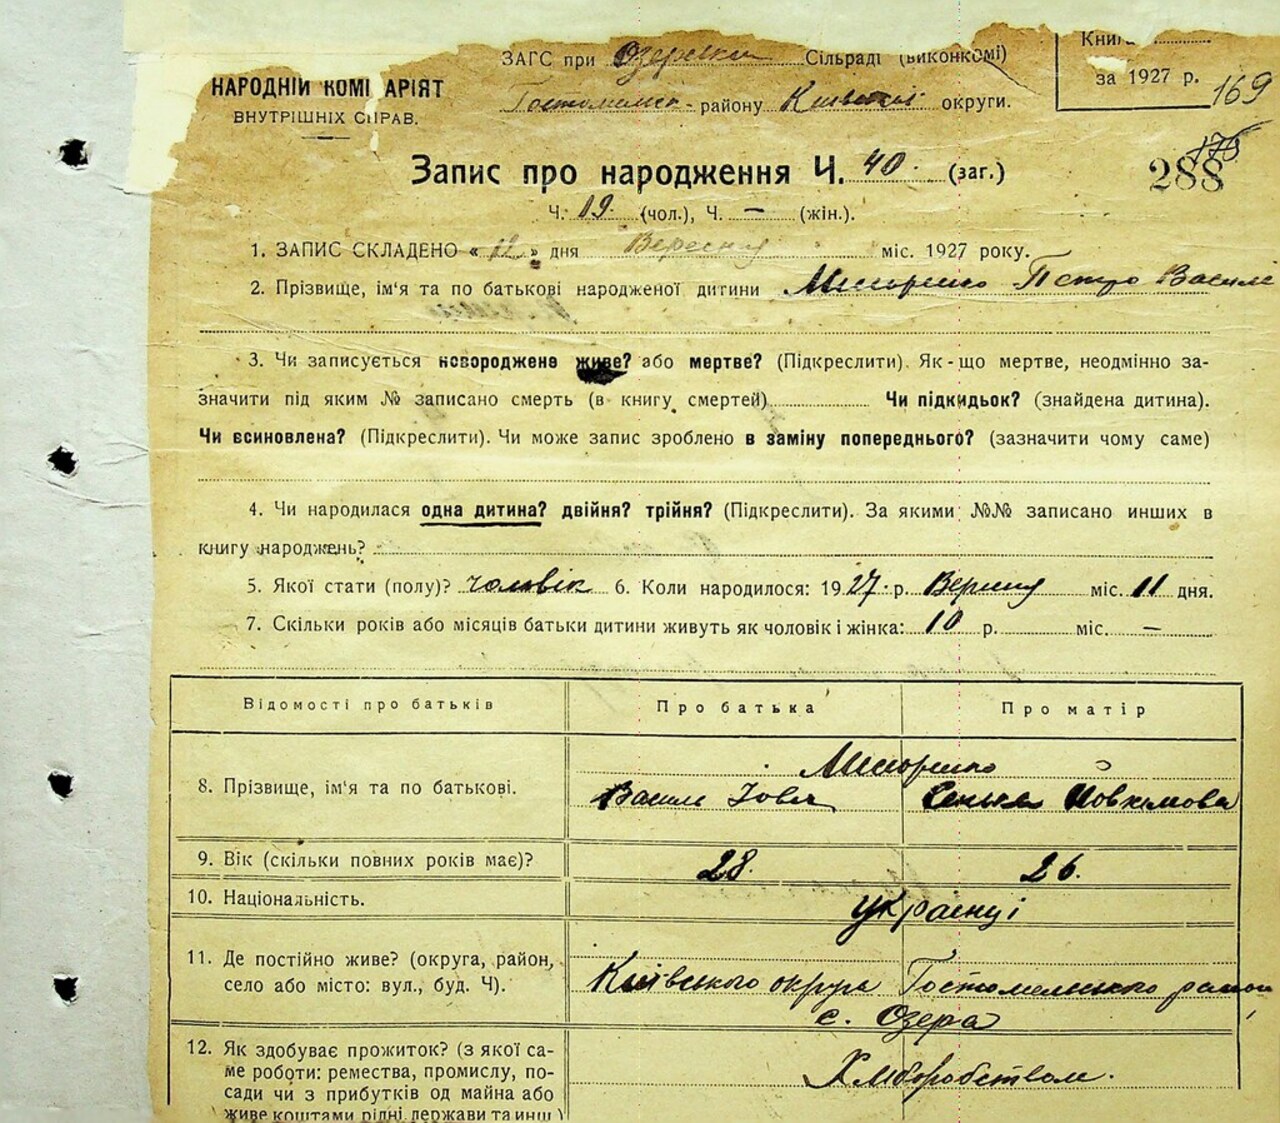 ЗАГС при Озерській Сільраді (виконкомі)
Книга
за 1927 р. 169
НАРОДНІЙ КОМІ АРІЯТ
ВНУТРІШНІХ СПРАВ.
Гостомельс. району Київської округи.
Запис про народження Ч. 40. (заг.)
288 175
Ч. 19 (чол.), Ч. — (жін.).
1. ЗАПИС СКЛАДЕНО « 12 » дня Вересня міс. 1927 року.
2. Прізвище, ім'я та по батькові народженої дитини Петро Василів
3. Чи записується новороджене живе? або мертве? (Підкреслити). Як-що мертве, неодмінно за-
значити під яким № записано смерть (в книгу смертей) Чи підкидьок? (знайдена дитина).
Чи всиновлена? (Підкреслити). Чи може запис зроблено в заміну попереднього? (зазначити чому саме)
4. Чи народилася одна дитина? двійня? трійня? (Підкреслити). За якими №№ записано инших в
книгу народжень?
5. Якої стати (полу)? чоловік 6. Коли народилося: 1927. р. Вересня міс. 11 дня.
7. Скільки років або місяців батьки дитини живуть як чоловік і жінка: 10 р. міс. —
Відомості про батьків Про батька Про матір
8. Прізвище, ім'я та по батькові.
Василь Іовв
9. Вік (скільки повних років має)? 28. 26.
10. Національність. Українці
11. Де постійно живе? (округа, район,
село або місто: вул., буд. Ч).
Київського округа Гостомельського району
с. Озера
12. Як здобуває прожиток? (з якої са-
ме роботи: ремества, промислу, по-
сади чи з прибутків од майна або
живе коштами рідні держави та инш.)
Хліборобством.